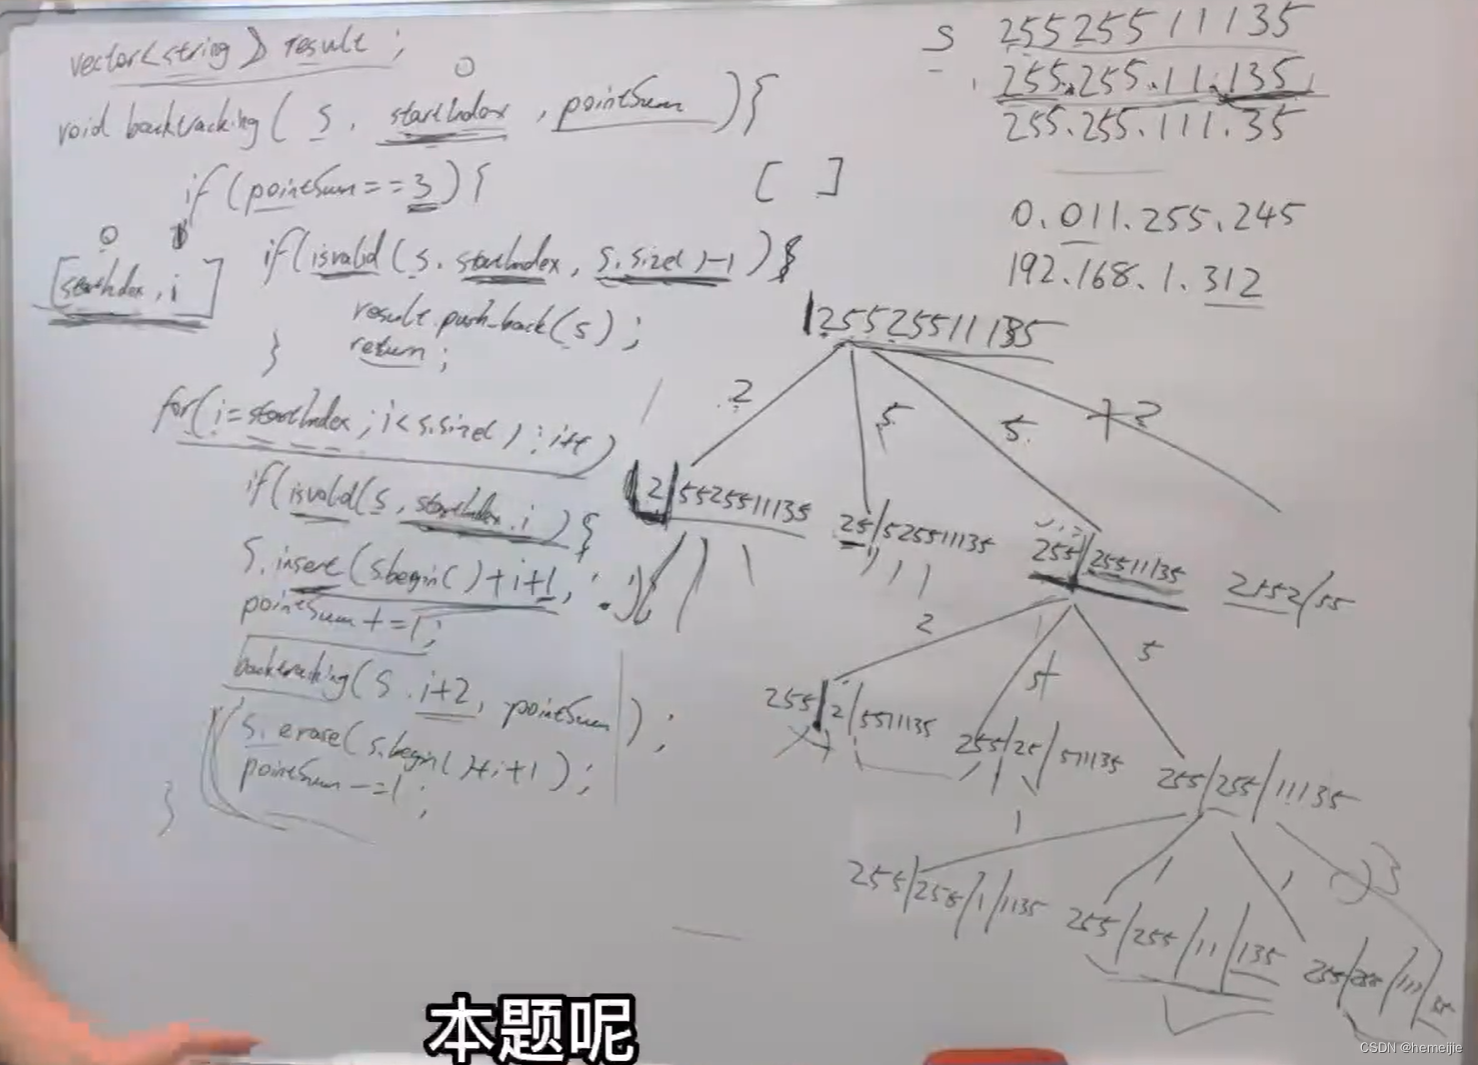 vector<string> result;
void backtracking(s, startIndex, pointSum){
if(pointSum==3){
[ ]
0
[startIndex, i]
if(isvalid(s, startIndex, s.size()-1)){
result.push_back(s);
}
return;
for(i=startIndex; i<s.size(); i++)
if(isvalid(s, startIndex, i){
s.insert(s.begin()+i+1, '.');
pointSum+=1;
backtracking(s, i+2, pointSum);
s.erase(s.begin()+i+1);
pointSum-=1;
}
s 25525511135
255.255.11.135
255.255.111.35
0.011.255.245
192.168.1.312
25525511135
2 5 5 2
2/5525511135 25/525511135 255/25511135 2552/55
2 5 5
255/2/5511135 255/25/511135 255/255/11135
1 1 1 3
255/255/1/1135 255/255/11/135 255/255/111/35
本题呢
CSDN @hemeijie